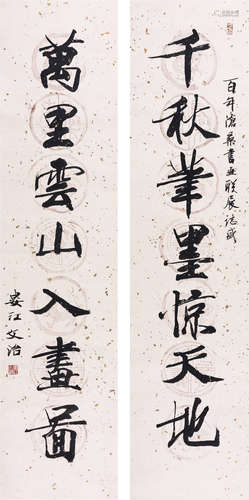 千秋筆墨惊天地
百年滄桑書画联展誌盛
萬里雲山入畫圖
婁江文治